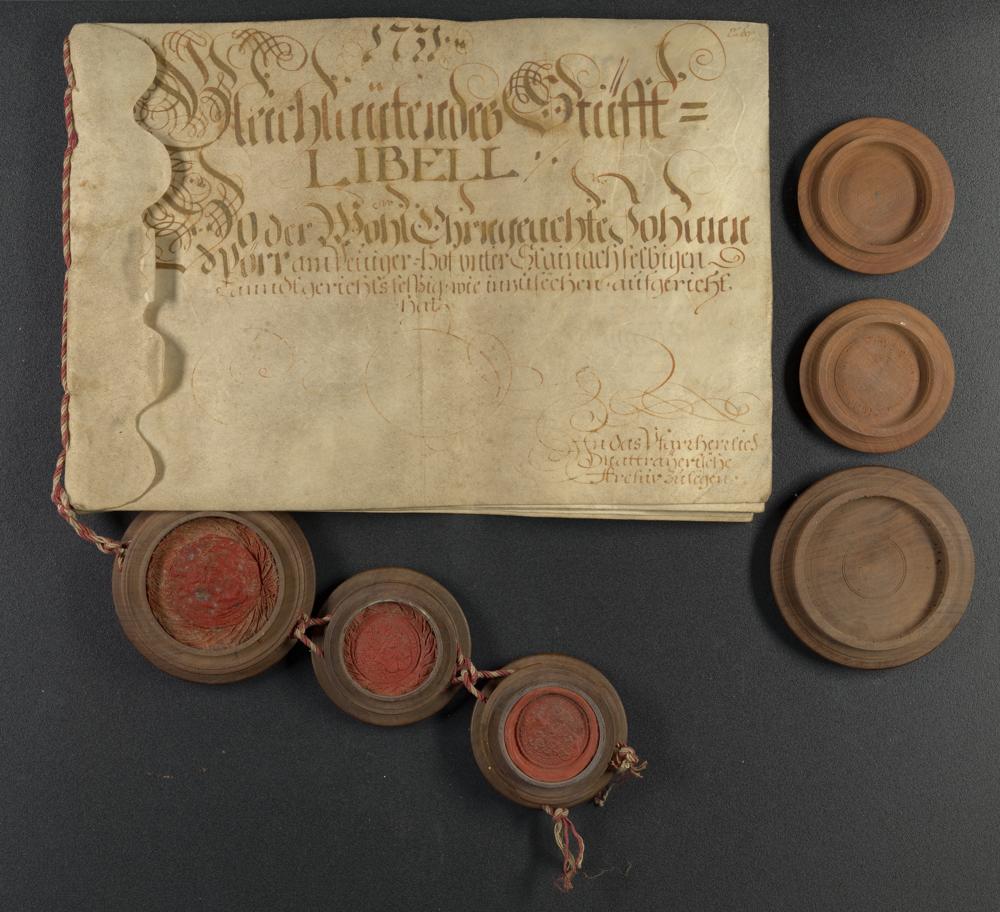 1731
Gleichlautendes Stüfft=
LIBELL
So der Wohl Ehrngeachte Johann
Pörr am Hof unter Stainach selbigen
Lanndtgerichts sesßig wie innzusechen aufgericht
hat
In das Pfarrherrlich
Mattrayerische
Archiv zulegen